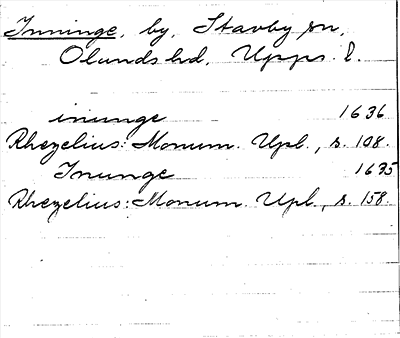 Inninge, by, Stavby sn,
Olands hd, Upps. l.
inunge 1636
Rhezelius: Monum. Upl., s. 108.
Inunge 1635
Rhezelius: Monum. Upl., s. 158.